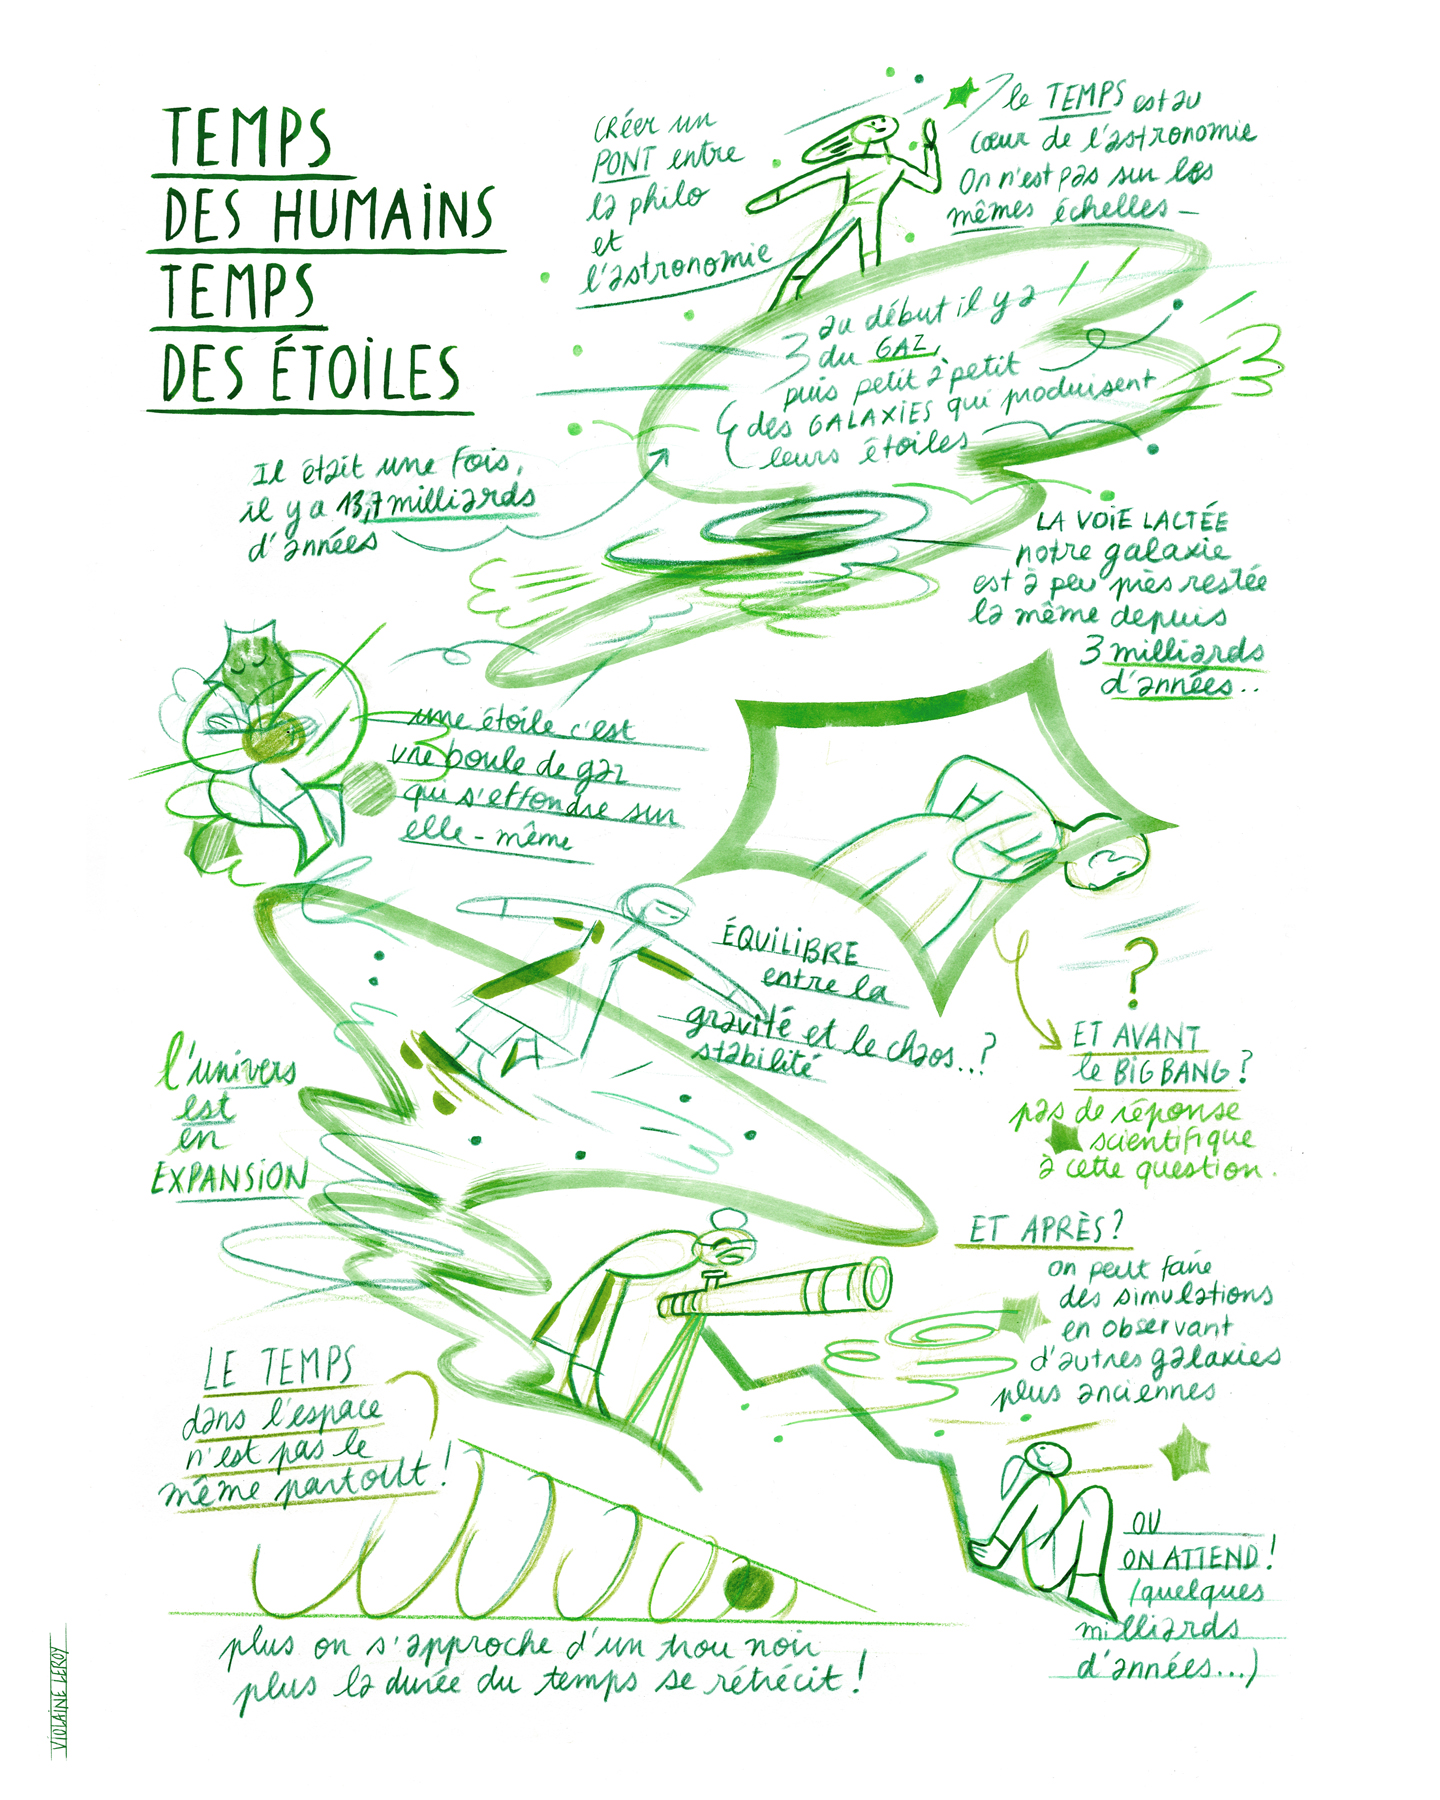 TEMPS
DES HUMAINS
TEMPS
DES ÉTOILES
créer un
PONT entre
la philo
et
l'astronomie
le TEMPS est au
cœur de l'astronomie
On n'est pas sur les
mêmes échelles –
au début il y a
du GAZ,
puis petit à petit
des GALAXIES qui produisent
leurs étoiles
Il était une fois,
il y a 13,7 milliards
d'années
LA VOIE LACTÉE
notre galaxie
est à peu près restée
la même depuis
3 milliards
d'années..
une étoile c'est
une boule de gaz
qui s'effondre sur
elle-même
ÉQUILIBRE
entre la
gravité et le chaos...?
stabilité
?
ET AVANT
le BIG BANG ?
pas de réponse
scientifique
à cette question.
l'univers
est
en
EXPANSION
ET APRÈS ?
on peut faire
des simulations
en observant
d'autres galaxies
plus anciennes
LE TEMPS
dans l'espace
n'est pas le
même partout !
OU
ON ATTEND !
(quelques
milliards
d'années...)
plus on s'approche d'un trou noir
plus la durée du temps se rétrécit !
VIOLAINE LEROY